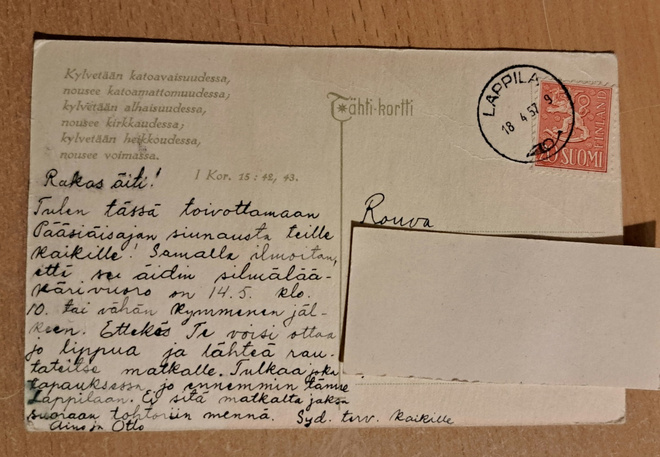 Kylvetään katoavaisuudessa,
nousee katoamattomuudessa;
kylvetään alhaisuudessa,
nousee kirkkaudessa;
kylvetään heikkoudessa,
nousee voimassa.
I Kor. 15: 42, 43.
Tähti-kortti
LAPPILA
18 4 57 9
SUOMI
FINLAND
Rakas äiti!
Tulen tässä toivottamaan
Pääsiäisajan siunausta teille
kaikille! Samalla ilmoitan,
että se äidin silmälää-
kärivuoro on 14.5. klo.
10. tai vähän kymmenen jäl-
keen. Ettekös Te voisi ottaa
jo lippua ja lähteä rau-
tateitse matkalle. Tulkaa joka
tapauksessa jo ennemmin tänne
Lappilaan. Ei sitä matkalta jaksa
suoraan tohtoriin mennä. Syd. terv. kaikille
Aino ja Otto
Rouva